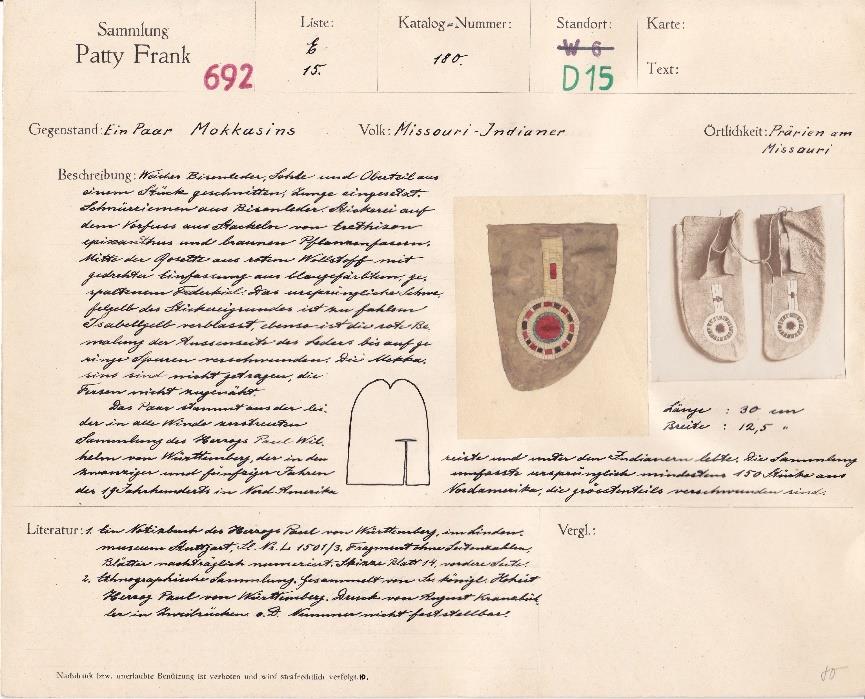 Sammlung
Patty Frank
692
Liste:
E
15.
Katalog=Nummer:
180.
Standort:
W 6
D 15
Karte:
Text:
Gegenstand: Ein Paar Mokkasins
Volk: Missouri-Indianer
Örtlichkeit: Prärien am
Missouri
Beschreibung: Weiches Bisonleder, Sohle und Oberteil aus
einem Stück geschnitten, Zunge eingesetzt.
Schnürriemen aus Bisonleder. Stickerei auf
dem Vorfuss aus Stacheln von Erethizon
epixanthus und braunen Pflanzenfasern.
Mitte der Rosette aus rotem Wollstoff mit
gedrehter Einfassung aus blaugefärbtem, ge-
spaltenem Federkiel. Das ursprüngliche Schwe-
felgelb des Stickereigrundes ist zu fahlem
Isabellgelb verblasst, ebenso ist die rote Be-
malung der Aussenseite des Leders bis auf ge-
ringe Spuren verschwunden. Die Mokka-
sins sind nicht getragen, die
Fersen nicht zugenäht.
Das Paar stammt aus der lei-
der in alle Winde zerstreuten
Sammlung des Herzogs Paul Wil-
helm von Württemberg, der in den
zwanziger und fünfziger Jahren
des 19 Jahrhunderts in Nord Amerika
Länge : 30 cm
Breite : 12,5 "
reiste und unter den Indianern lebte. Die Sammlung
umfasste ursprünglich mindestens 150 Stücke aus
Nordamerika, die grösstenteils verschwunden sind.
Literatur: 1. Ein Notizbuch des Herzogs Paul von Württemberg, im Linden-
museum Stuttgart, Sl. Nr. L 1501/3. Fragment ohne Seitenzahlen,
Blätter nachträglich numeriert. Skizze Blatt 14, vordere Seite.
2. Ethnographische Sammlung. Gesammelt von Se königl. Hoheit
Herzog Paul von Württemberg. Druck von August Kranzbüh-
ler in Zweibrücken o. D. Nummer nicht feststellbar.
Vergl.:
Nachdruck bzw. unerlaubte Benützung ist verboten und wird strafrechtlich verfolgt.
80